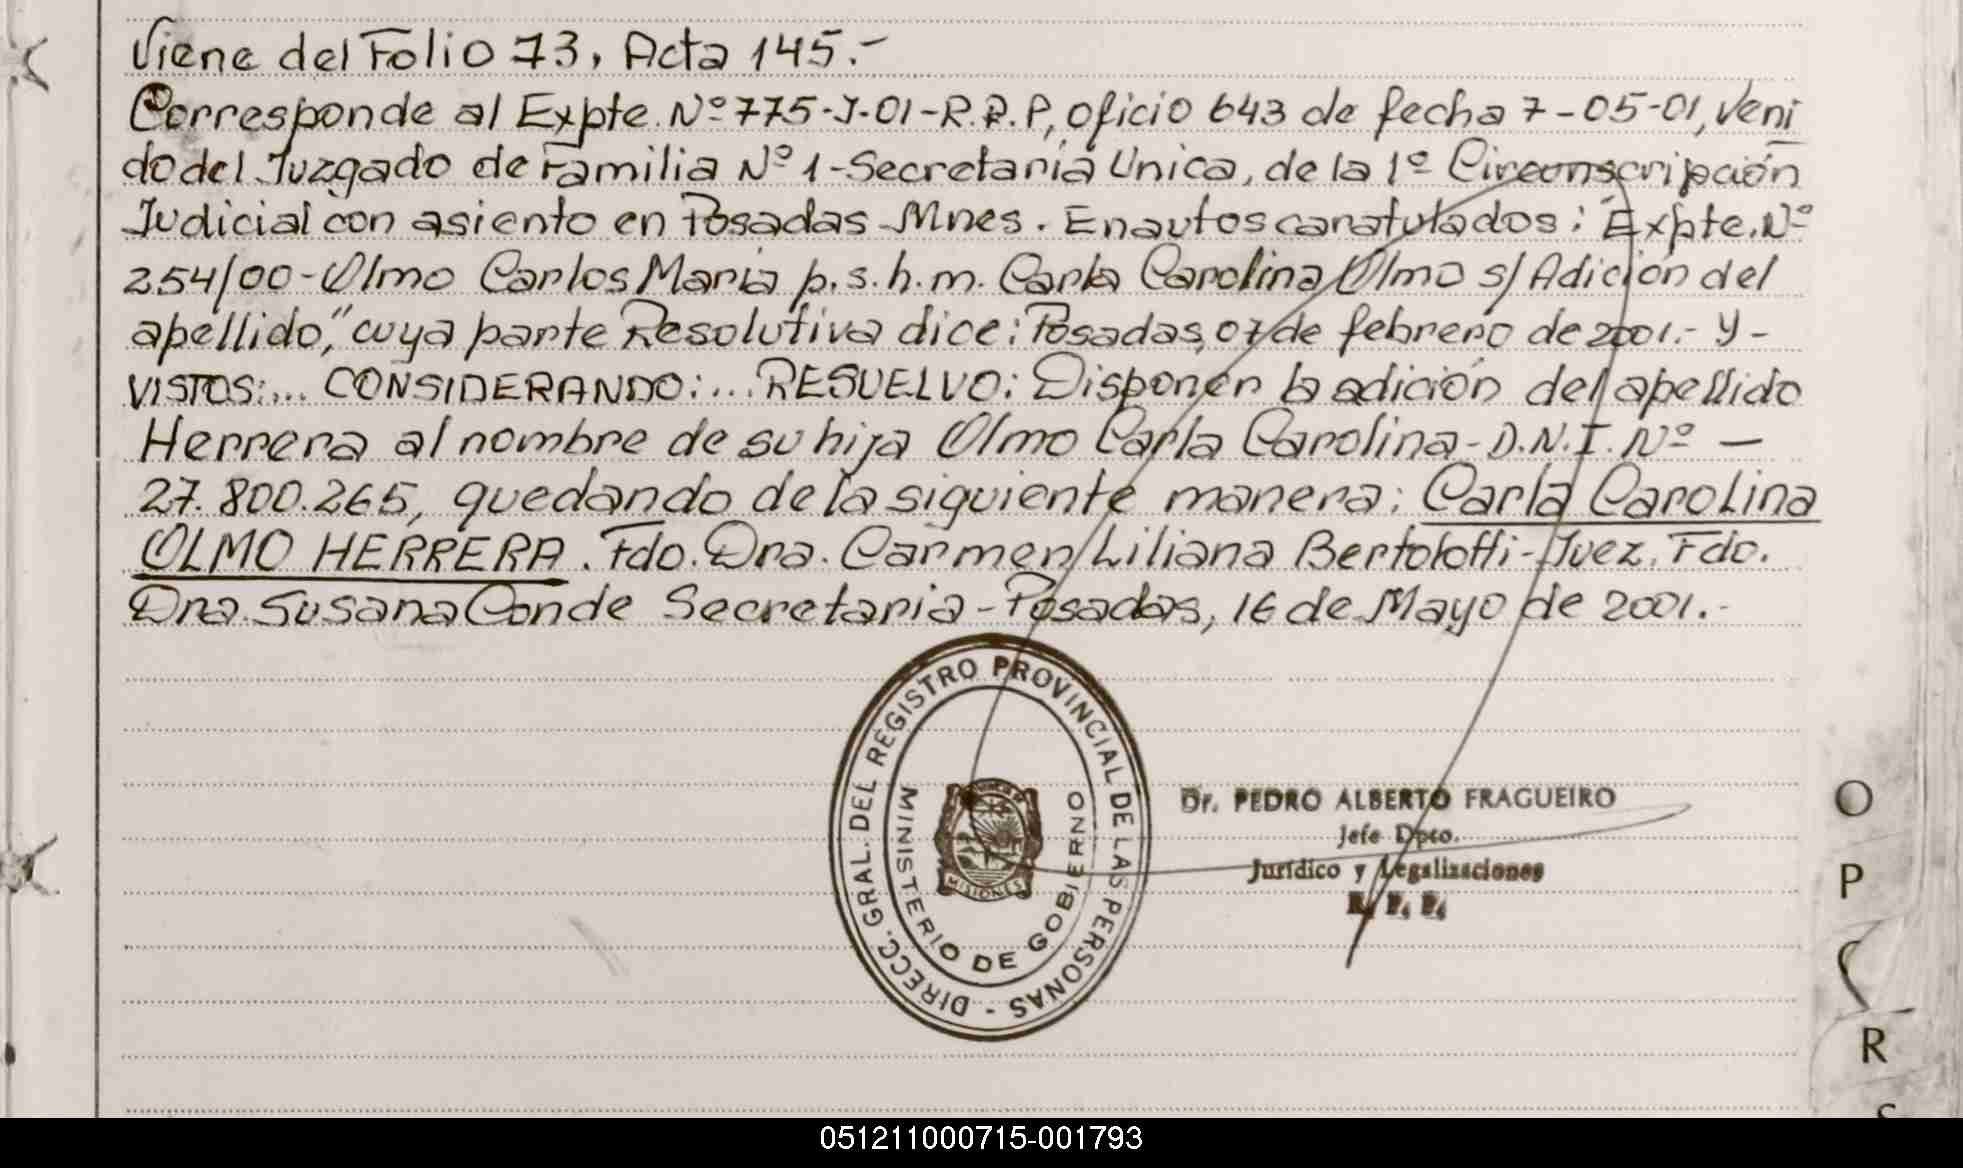 Viene del Folio 73, Acta 145.-
Corresponde al Expte. Nº 775-J-01-R.R.P, oficio 643 de fecha 7-05-01, veni
do del Juzgado de Familia Nº 1-Secretaria Unica, de la 1º Circonscripción
Judicial con asiento en Posadas-Mnes. En autos caratulados: "Expte. Nº
254/00-Olmo Carlos Maria p.s.h.m. Carla Carolina Olmo s/ Adición del
apellido", cuya parte Resolutiva dice: Posadas, 07 de febrero de 2001.- Y-
VISTOS:... CONSIDERANDO:... RESUELVO: Disponer la adición del apellido
Herrera al nombre de su hija Olmo Carla Carolina- D.N.I. Nº —
27.800.265, quedando de la siguiente manera: Carla Carolina
OLMO HERRERA. Fdo. Dra. Carmen Liliana Bertolotti-Juez. Fdo.
Dra. Susana Conde Secretaria-Posadas, 16 de Mayo de 2001.-
DIRECC. GRAL. DEL REGISTRO PROVINCIAL DE LAS PERSONAS -
MINISTERIO DE GOBIERNO
MISIONES
Dr. PEDRO ALBERTO FRAGUEIRO
Jefe Dpto.
Jurídico y Legalizaciones
R. P. P.
O
P
R
S
051211000715-001793